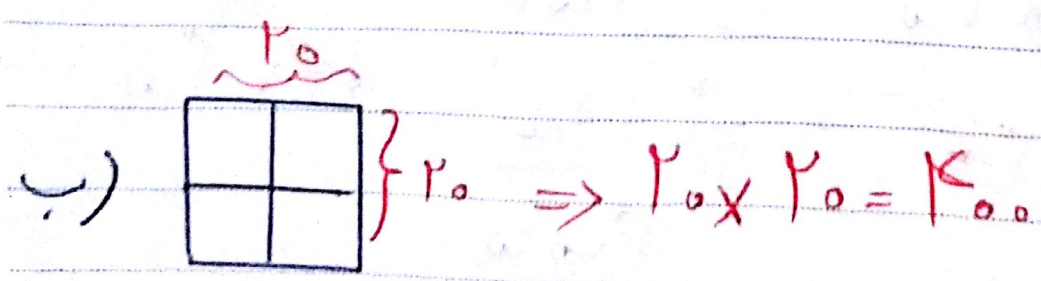 ۲۰
ب) ۲۰ => ۲۰ x ۲۰ = ۴۰۰